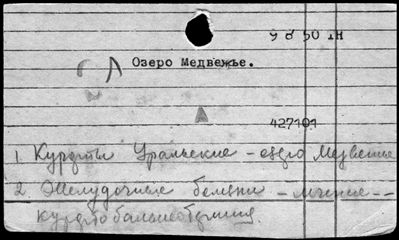 9 8 50 IH
Озеро Медвежье.
427101
1. Курорты Уральские - озеро Медвежье
2. Желудочные болезни - лечение --
курорто